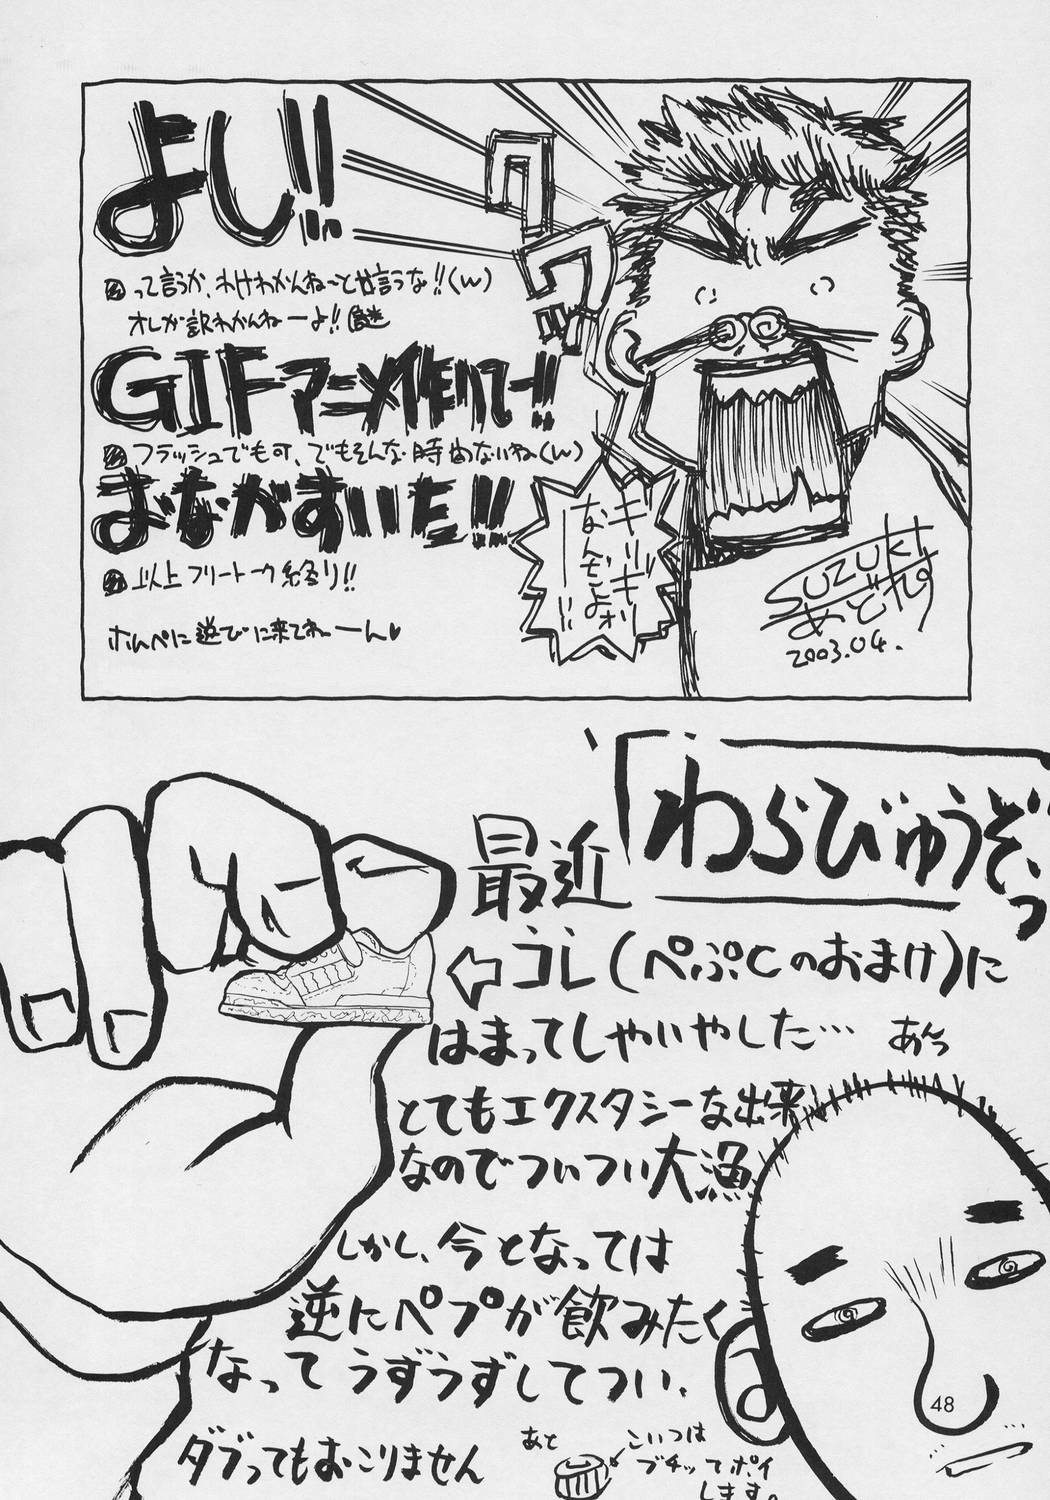 よし!!
って言うか、わけわかんね〜とか言うな!!(w)
オレが訳わかんねーよ!! 謎
GIFアニメ作りてー!!
フラッシュでも可、でもそんな時間ないね(w)
おなかすいた!!
以上フリートーク終り!!
ホムペに遊びに来てねーーん♥
クワッ
ギリギリ
なんだよォ
ーー!!
SUZUKI
あどれす
2003.04.
「わらびゅうぞっ
最近
⇦コレ(ぺぷCのおまけ)に
はまってしやいやした…
あんっ
とてもエクスタシーな出来
なのでついつい大漁
しかし、今となっては
逆にペプが飲みたく
なってうずうずしてつい、
ダブってもおこりません
あと
こいつは
ブチッてポイ
します。
48